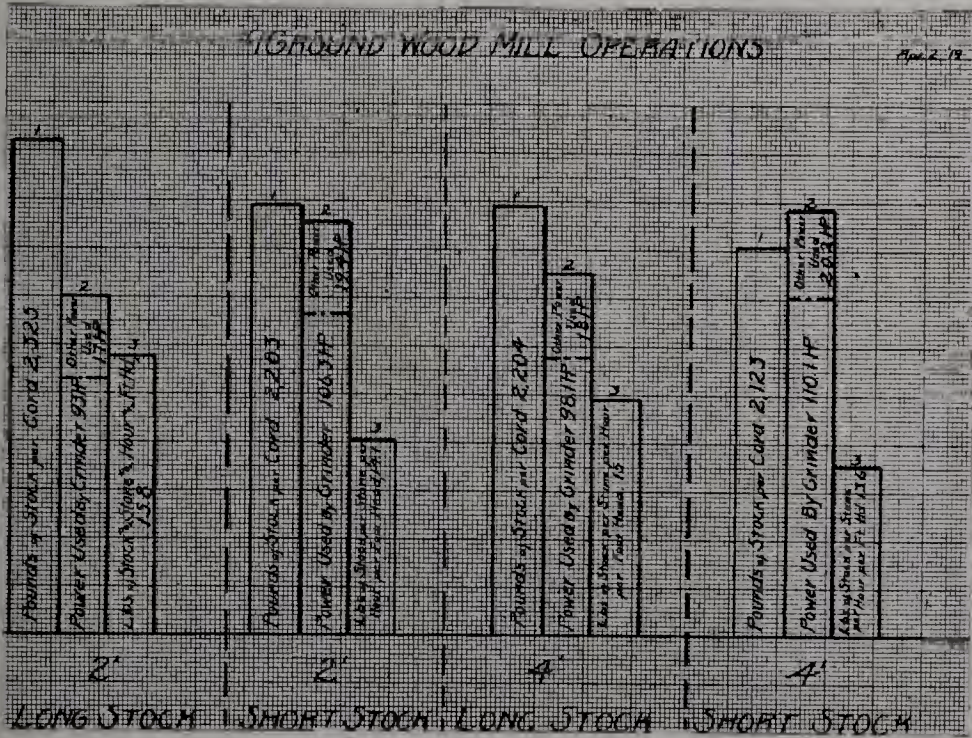 GROUND WOOD MILL OPERATIONS
Apr. 2 '19
1
Pounds of Stock per Cord 2,525
2
Other Power
Used
17HP
Power Used by Grinder 93HP
3
Lbs of Stock Stone Hour Ft. Hd.
15.8
1
Pounds of Stock per Cord 2,203
2
Other Power
Used
19.4HP
Power Used by Grinder 106.3HP
3
Lbs of Stock per Stone per
Hour per Foot Head
1
Pounds of Stock per Cord 2,204
2
Other Power
Used
Power Used by Grinder 98.1HP
3
Lbs of Stock per Stone per Hour
per Foot Head 15
1
Pounds of Stock per Cord 2,123
2
Other Power
Used
20.2HP
Power Used By Grinder 110.1HP
3
Lbs of Stock per Stone
per Hour per Ft Hd 13.6
2'
2'
4'
4'
LONG STOCK
SHORT STOCK
LONG STOCK
SHORT STOCK